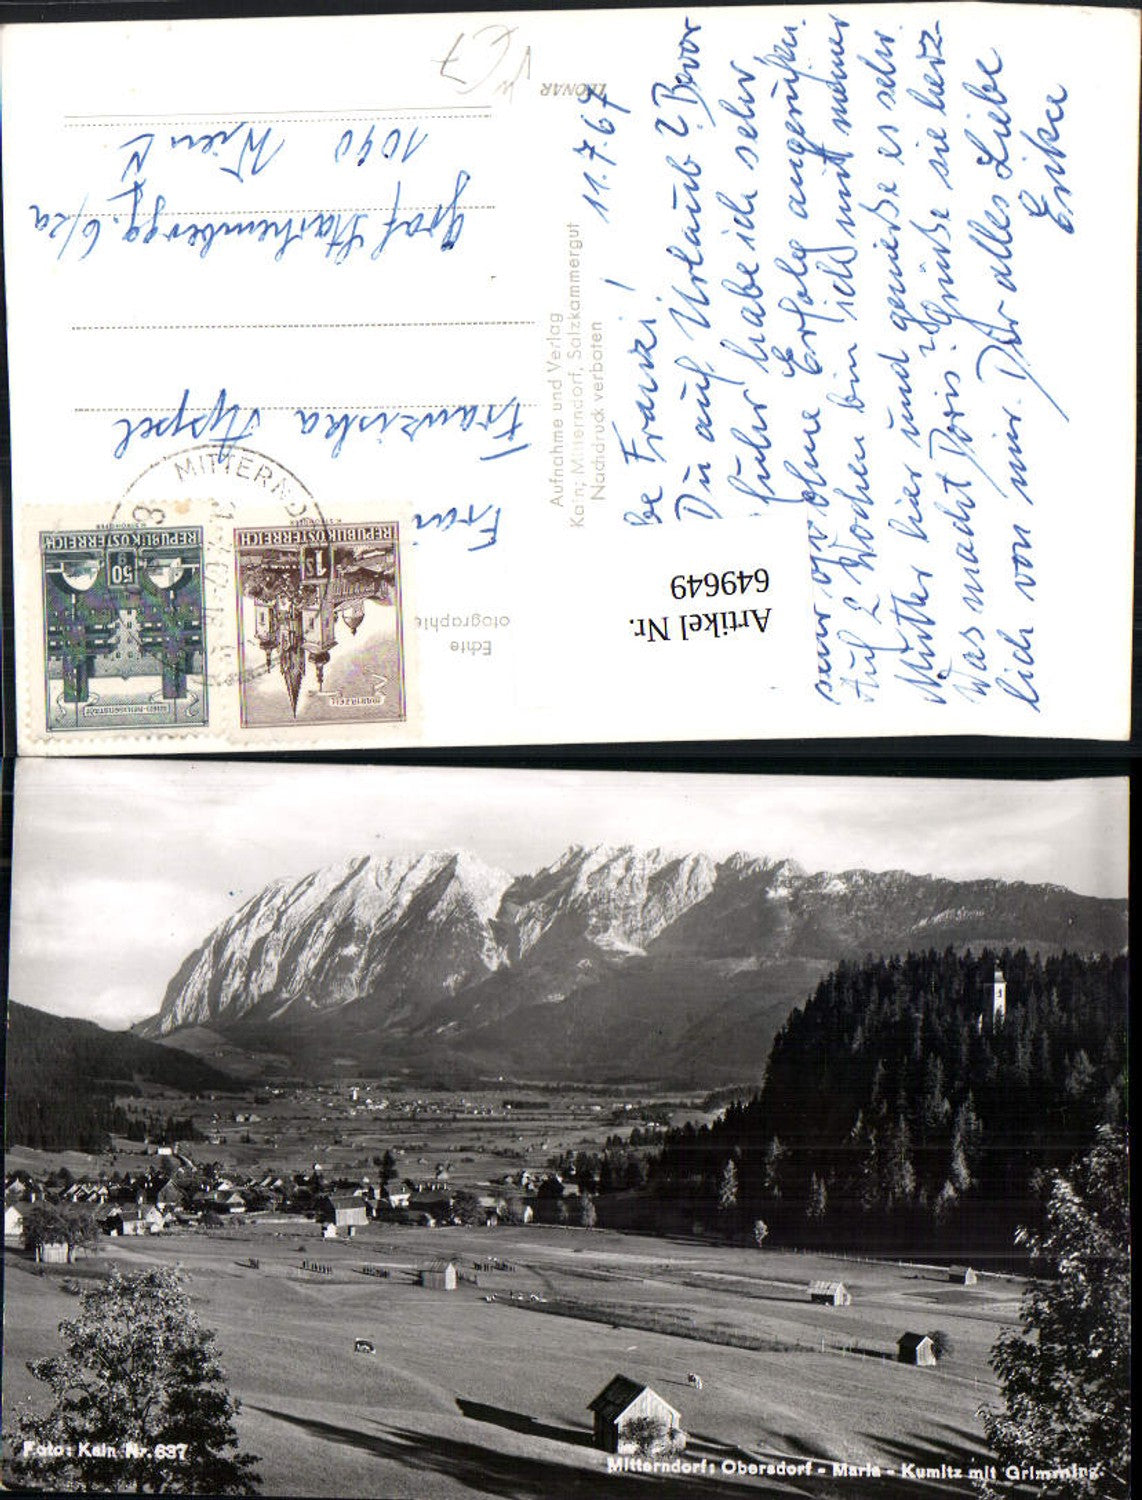 11.7.67
be Franzi!
Du auf Urlaub? Bevor
fuhr habe ich sehr
sehr oft ohne Erfolg angerufen.
Auf 2 Wochen bin ich mit meiner
Mutter hier und genieße es sehr.
Was macht Doris? Grüße sie herz-
lich von mir. Dir alles Liebe
Erika
Artikel Nr.
649649
Aufnahme und Verlag
Kain; Mitterndorf, Salzkammergut
Nachdruck verboten
LEONAR
Echte
otographie
Franziska Appel
Graf Starhembergg. 6/2a
1040 Wien
MITTERNDO
REPUBLIK ÖSTERREICH
50 g
REPUBLIK ÖSTERREICH
1 S
MARIAZELL
Foto: Kain Nr. 637
Mitterndorf: Obersdorf - Maria - Kumitz mit Grimming.